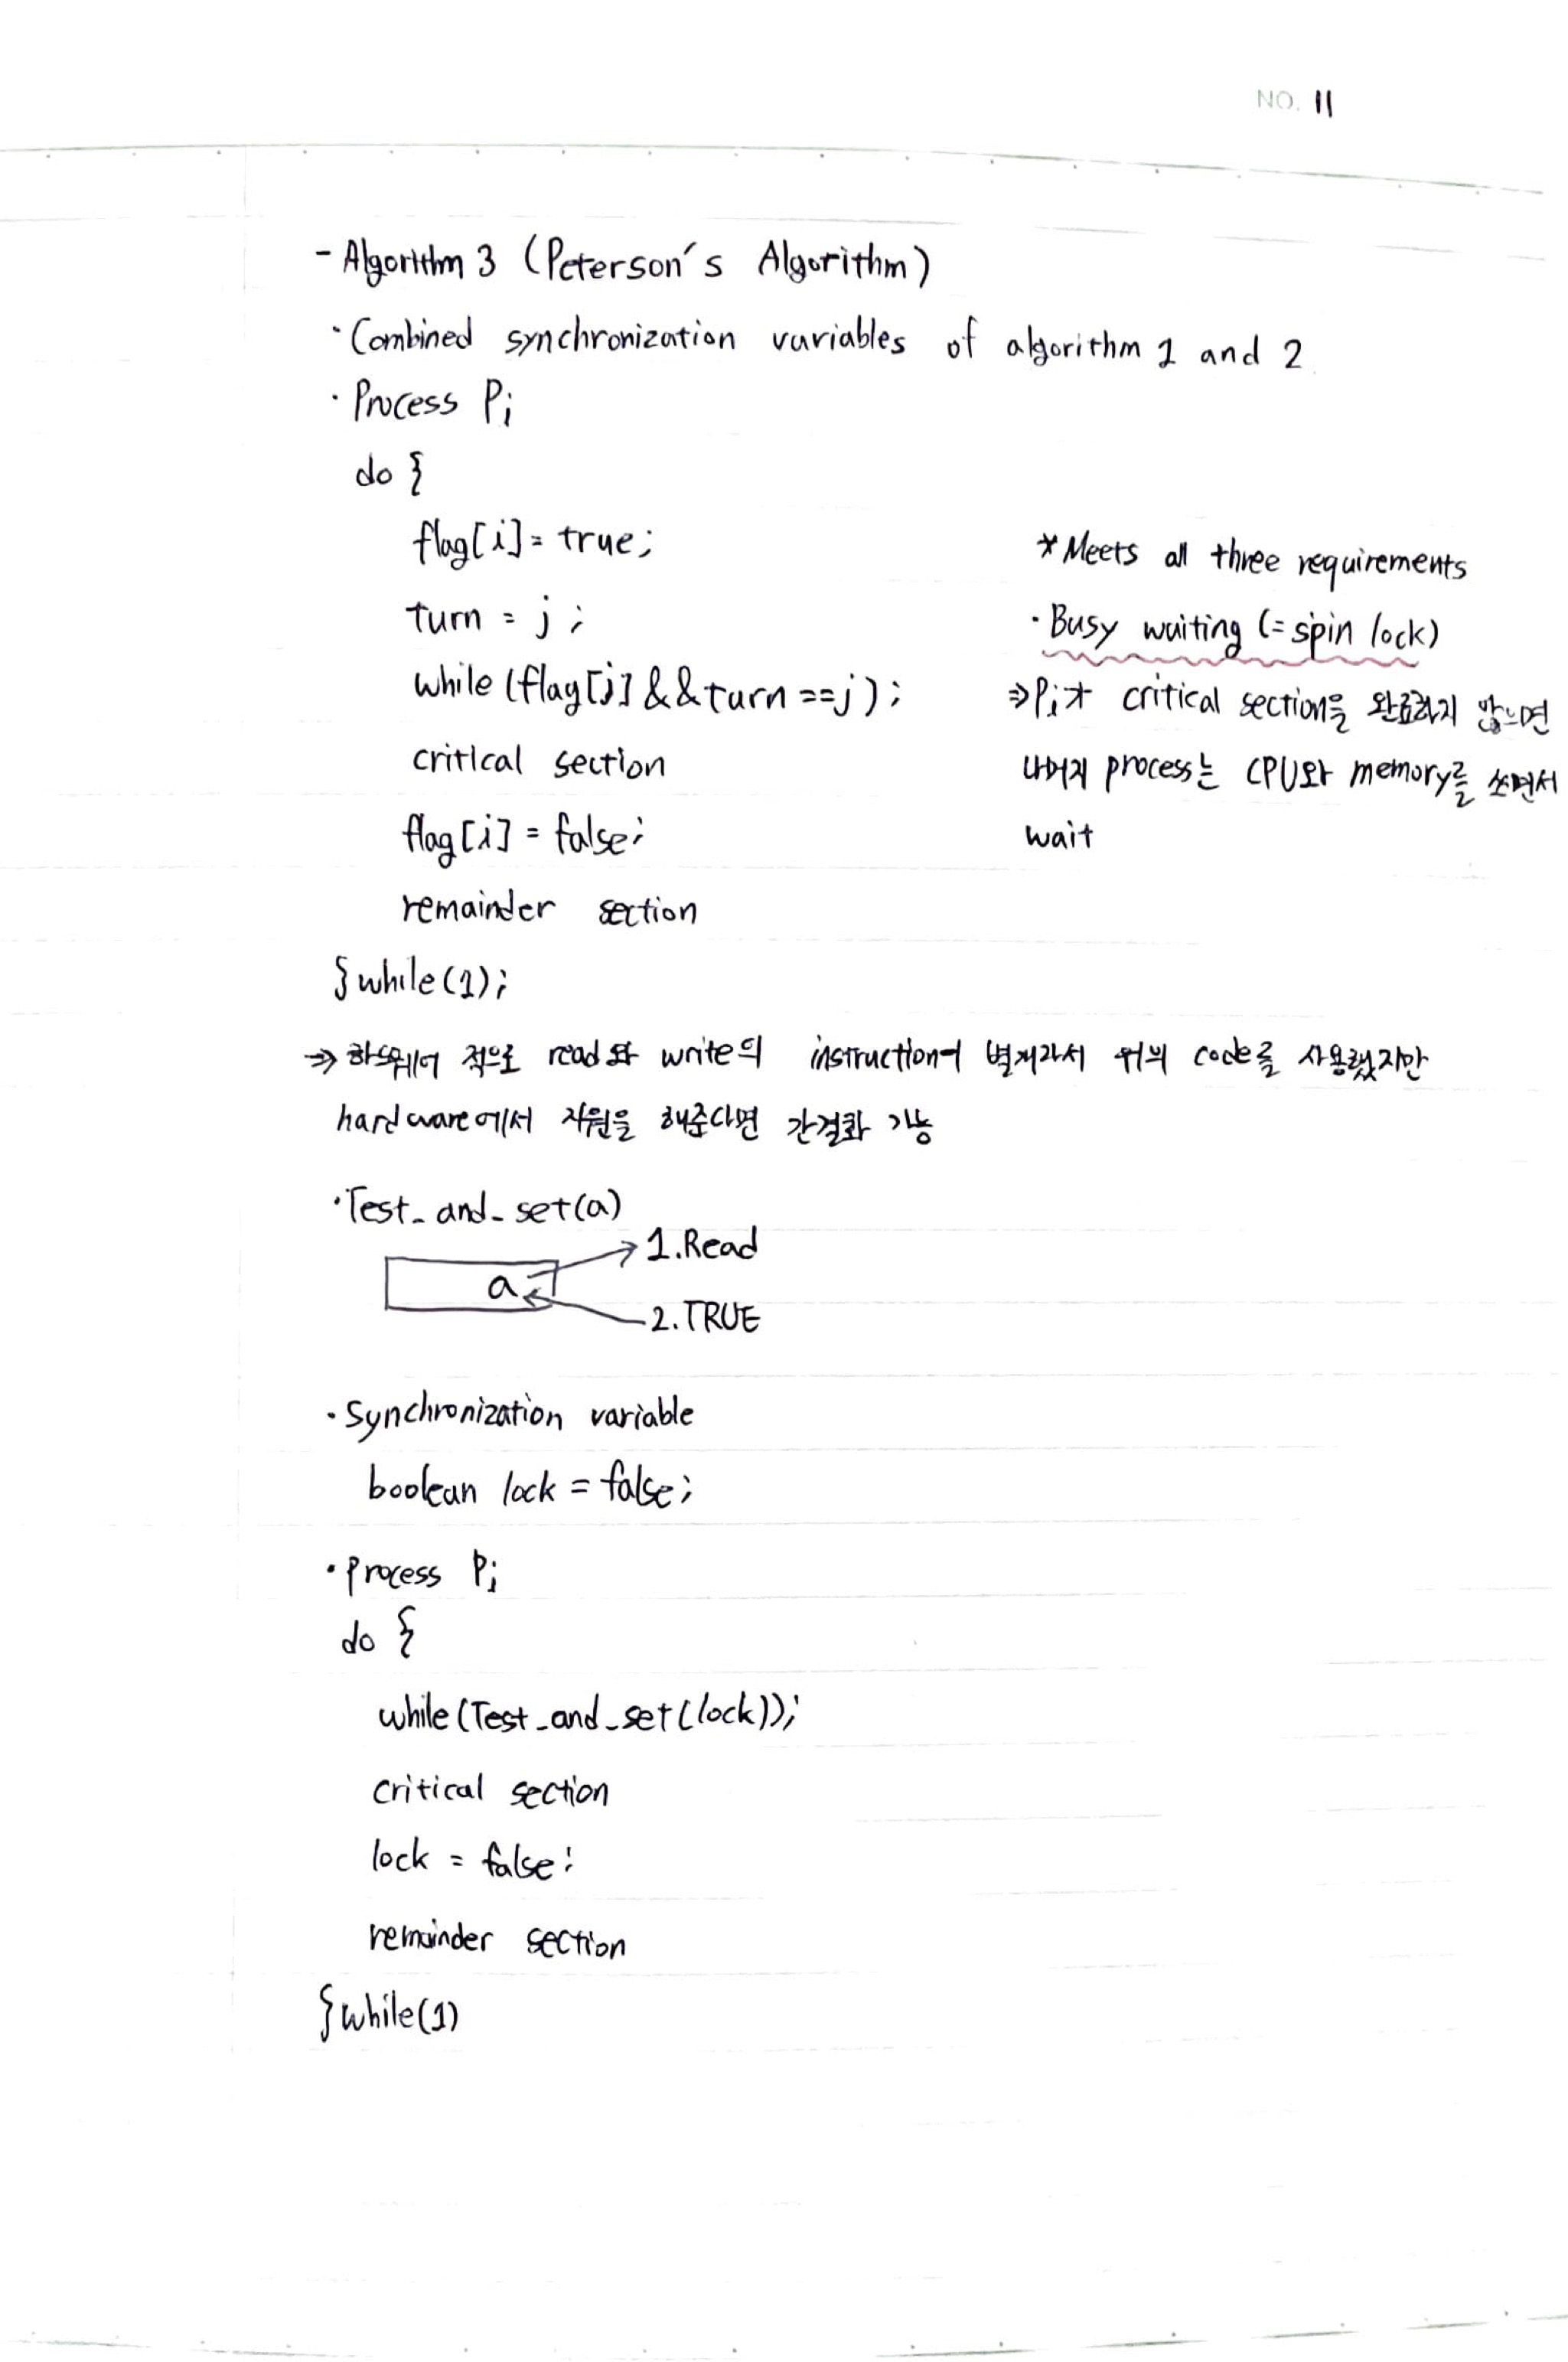 NO. 11
- Algorithm 3 (Peterson's Algorithm)
· Combined synchronization variables of algorithm 1 and 2
· Process Pi
do {
flag[i] = true;
turn = j;
while (flag[j] && turn == j);
critical section
flag[i] = false;
remainder section
} while(1);
* Meets all three requirements
· Busy waiting (= spin lock)
⇒ Pi가 critical section을 완료하지 않으면
나머지 process는 CPU와 memory를 쓰면서
wait
⇒ 하드웨어 적으로 read와 write의 instruction이 별개라서 위의 code를 사용했지만
hardware에서 지원을 해준다면 간결화 가능
· Test_and_set(a)
1. Read
a
2. TRUE
· Synchronization variable
boolean lock = false;
· Process Pi
do {
while (Test_and_set(lock));
critical section
lock = false;
remainder section
} while(1)